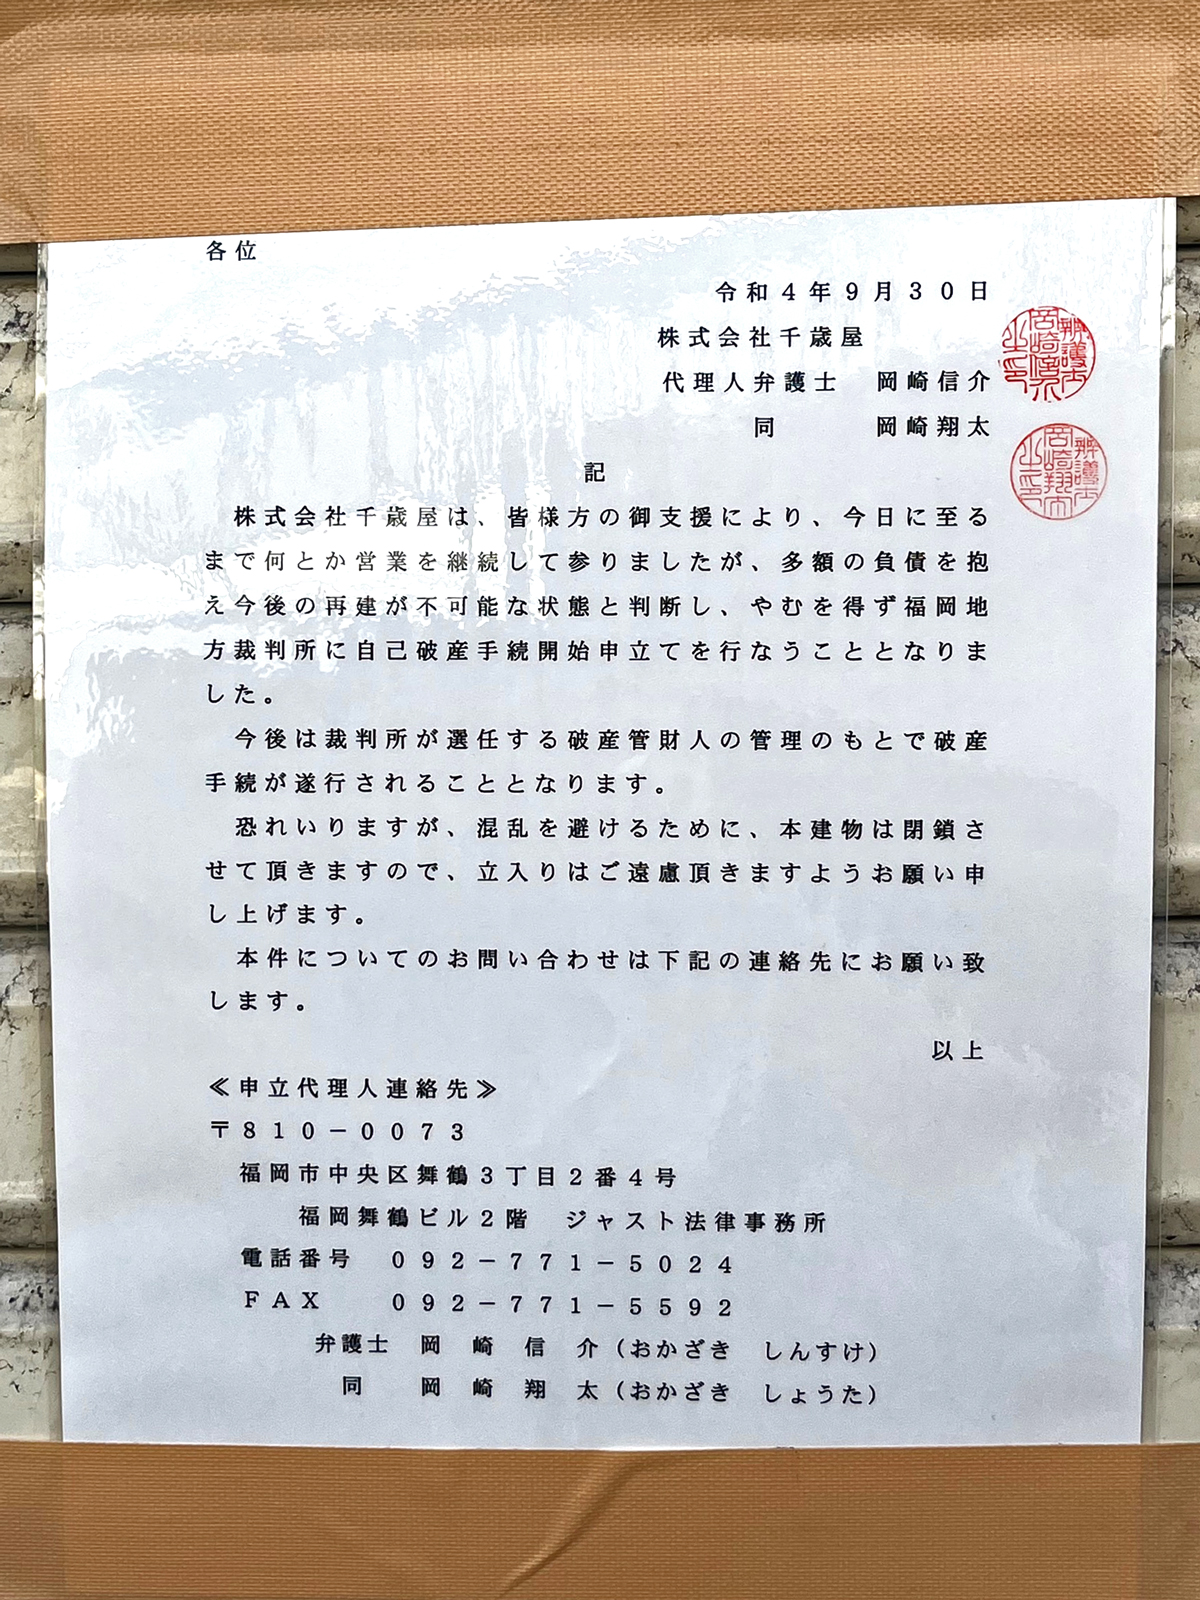 各位
令和４年９月３０日
株式会社千歳屋
代理人弁護士　岡崎信介
同　　　岡崎翔太
記
　株式会社千歳屋は、皆様方の御支援により、今日に至る
まで何とか営業を継続して参りましたが、多額の負債を抱
え今後の再建が不可能な状態と判断し、やむを得ず福岡地
方裁判所に自己破産手続開始申立てを行なうこととなりま
した。
　今後は裁判所が選任する破産管財人の管理のもとで破産
手続が遂行されることとなります。
　恐れいりますが、混乱を避けるために、本建物は閉鎖さ
せて頂きますので、立入りはご遠慮頂きますようお願い申
し上げます。
　本件についてのお問い合わせは下記の連絡先にお願い致
します。
以上
≪申立代理人連絡先≫
〒８１０－００７３
福岡市中央区舞鶴３丁目２番４号
福岡舞鶴ビル２階　ジャスト法律事務所
電話番号　０９２－７７１－５０２４
ＦＡＸ　　０９２－７７１－５５９２
弁護士　岡　崎　信　介（おかざき　しんすけ）
同　　岡　崎　翔　太（おかざき　しょうた）